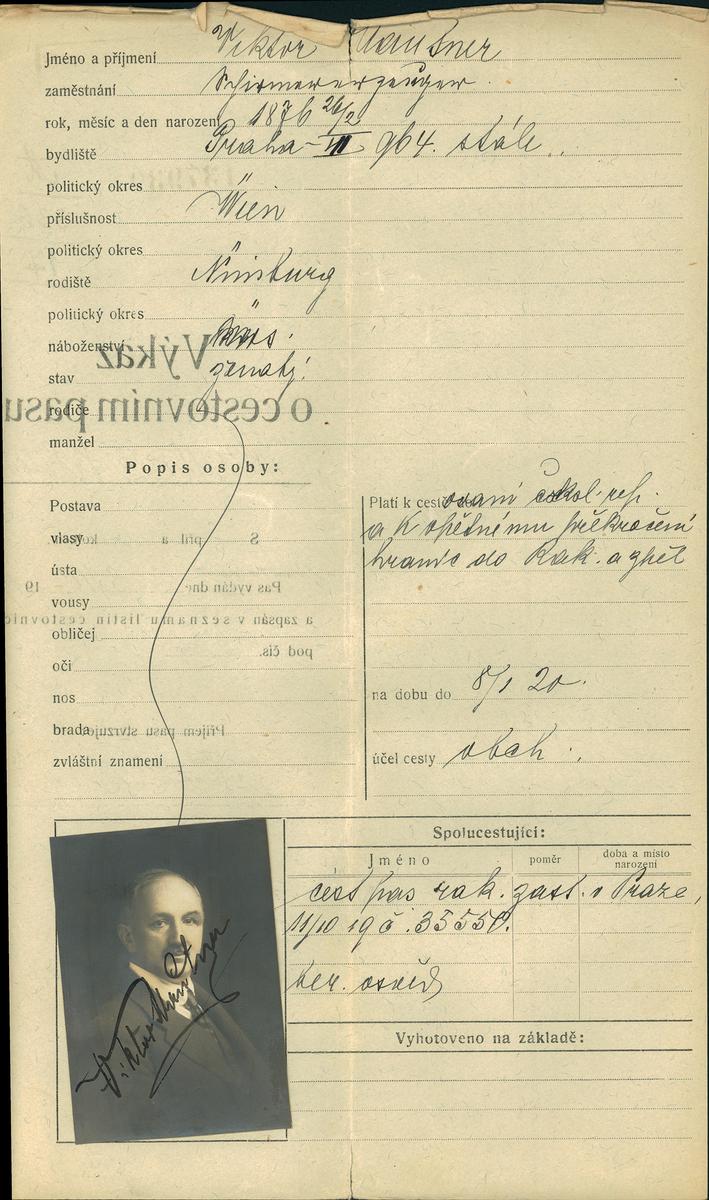 Jméno a příjmení Viktor Mautner
zaměstnání Schirmererzeuger.
rok, měsíc a den narození 1876 26/2
bydliště Praha-VII 964. stále.
politický okres
příslušnost Wien
politický okres
rodiště Nimburg
politický okres "
náboženství
stav ženatý.
rodiče
manžel
Popis osoby:
Postava
vlasy
ústa
vousy
obličej
oči
nos
brada
zvláštní znamení
Platí k cestě ovaní čskol. rep.
a k opětnému překročení
hranic do Rak. a zpět
na dobu do 8/1 20.
účel cesty obch.
Výkaz
o cestovním pasu
S příl a kolkov.
Pas vydán dne 19
a zapsán v seznamu listin cestovních
pod čís.
Příjem pasu stvrzuje
Spolucestující:
Jméno
poměr
doba a místo
narození
cest pas rak. zast. v Praze,
11/10 19 č. 35550.
ber. osvěd
Vyhotoveno na základě:
Viktor Mautner